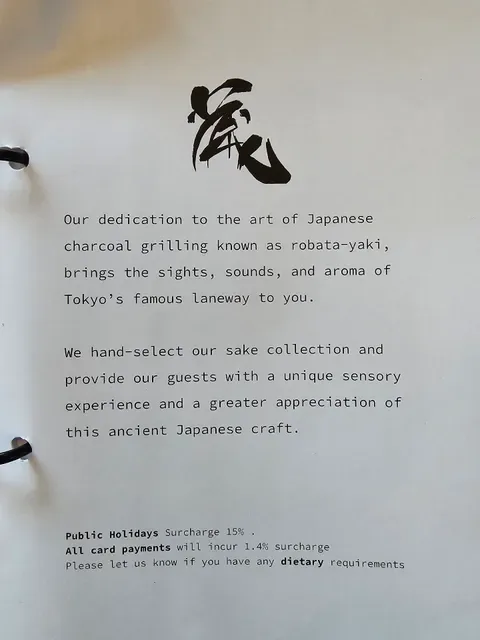 蔵
Our dedication to the art of Japanese
charcoal grilling known as robata-yaki,
brings the sights, sounds, and aroma of
Tokyo's famous laneway to you.
We hand-select our sake collection and
provide our guests with a unique sensory
experience and a greater appreciation of
this ancient Japanese craft.
Public Holidays Surcharge 15% .
All card payments will incur 1.4% surcharge
Please let us know if you have any dietary requirements